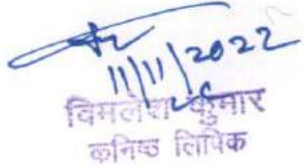 11/11/2022
विमलेश कुमार
कनिष्ठ लिपिक